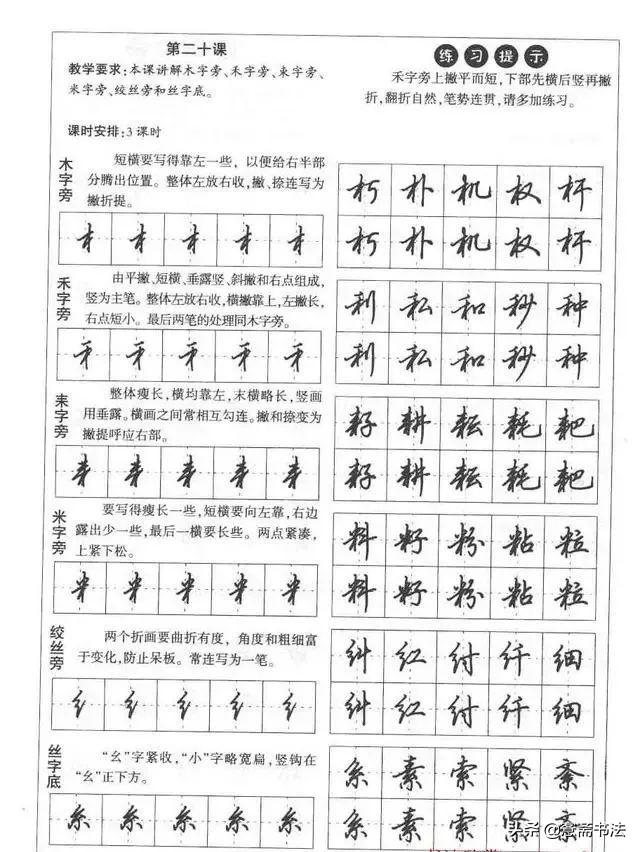 第二十课
教学要求:本课讲解木字旁、禾字旁、耒字旁、
米字旁、绞丝旁和丝字底。
课时安排:3课时
练习提示
禾字旁上撇平而短,下部先横后竖再撇
折,翻折自然,笔势连贯,请多加练习。
木字旁
短横要写得靠左一些,以便给右半部
分腾出位置。整体左放右收,撇、捺连写为
撇折提。
木 木 木 木 木
朽 朴 机 权 杆
朽 朴 机 权 杆
禾字旁
由平撇、短横、垂露竖、斜撇和右点组成,
竖为主笔。整体左放右收,横撇靠上,左撇长,
右点短小。最后两笔的处理同木字旁。
禾 禾 禾 禾 禾
利 私 和 秒 种
利 私 和 秒 种
耒字旁
整体瘦长,横均靠左,末横略长,竖画
用垂露。横画之间常相互勾连。撇和捺变为
撇提呼应右部。
耒 耒 耒 耒 耒
耔 耕 耘 耗 耙
耔 耕 耘 耗 耙
米字旁
要写得瘦长一些,短横要向左靠,右边
露出少一些,最后一横要长些。两点紧凑,
上紧下松。
米 米 米 米 米
料 籽 粉 粘 粒
料 籽 粉 粘 粒
绞丝旁
两个折画要曲折有度,角度和粗细富
于变化,防止呆板。常连写为一笔。
纟 纟 纟 纟 纟
纠 红 纣 纤 细
纠 红 纣 纤 细
丝字底
“幺”字紧收,“小”字略宽扁,竖钩在
“幺”正下方。
糸 糸 糸 糸 糸
系 素 索 紧 紊
系 素 索 紧 紊